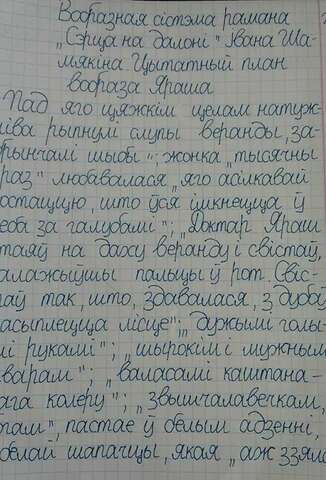 Вобразная сістэма рамана
„Сэрца на далоні" Івана Ша-
мякіна Цытатны план
вобраза Яраша
Пад яго цяжкім целам натуж-
ліва рыпнулі слупы веранды, за-
рынчалі шыбы"; жонка „тысячны
раз" любавалася „яго асілкавай
остаццю, што ўся імкнецца ў
еба за галубамі"; „Доктар Яраш
таяў на даху веранды і свістаў,
алажыўшы пальцы ў рот. Свіс-
аў так, што, здавалася, з дубоў
асыплецца лісце"; „дужымі голы-
мі рукамі"; „шырокім і мужным
варам"; „валасамі каштана-
ага колеру"; „звышчалавечкам,
пастае ў белым адзенні,
белай шапачцы, якая „аж ззяла